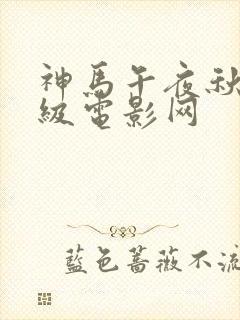 神馬午夜秋
級電影网
藍色薔薇不流